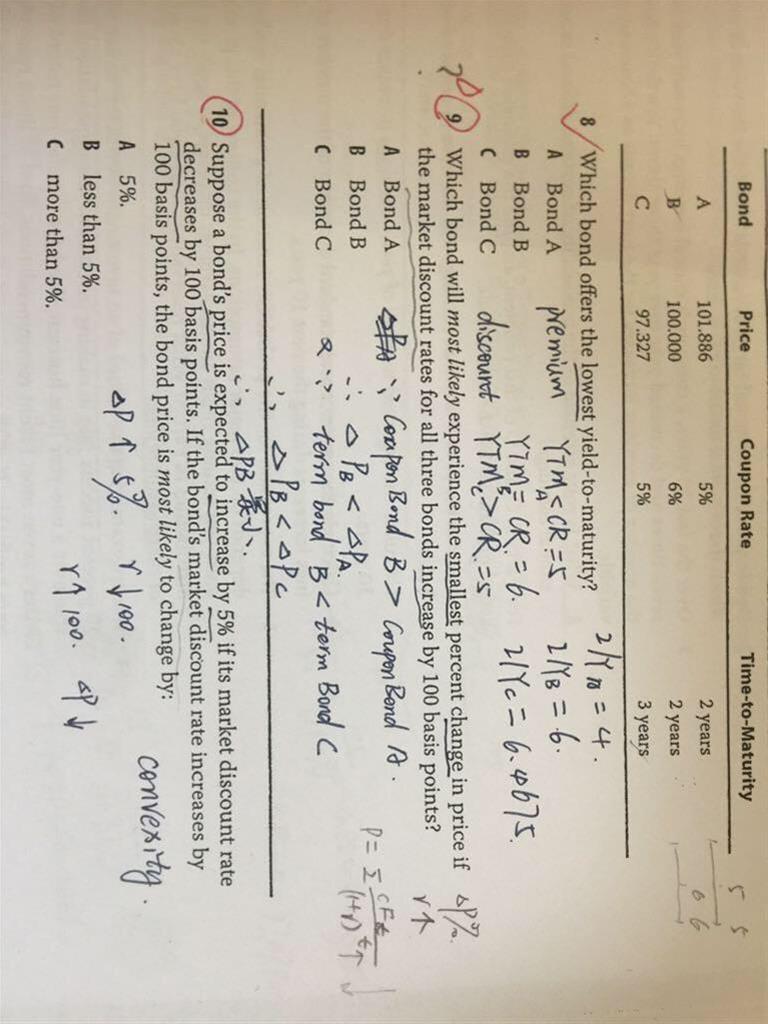 Bond Price Coupon Rate Time-to-Maturity
A 101.886 5% 2 years
B 100.000 6% 2 years
C 97.327 5% 3 years
5 5
6 6
8 Which bond offers the lowest yield-to-maturity?
A Bond A premium YTM_A < CR = 5
B Bond B YTM_B = CR = 6.
C Bond C discount YTM_C > CR = 5
= 4.
= 6.
= 6.
?
9 Which bond will most likely experience the smallest percent change in price if
the market discount rates for all three bonds increase by 100 basis points?
ΔP%.
r↑
A Bond A ∵ Coupon Bond B > Coupon Bond A.
B Bond B ∴ ΔP_B < ΔP_A.
C Bond C 2 ∵ term bond B < term Bond C
∴ ΔP_B < ΔP_C
∴ ΔPB 最小.
P = Σ CF_t / (1+r)^t ↑ ↓
10 Suppose a bond's price is expected to increase by 5% if its market discount rate
decreases by 100 basis points. If the bond's market discount rate increases by
100 basis points, the bond price is most likely to change by:
A 5%.
B less than 5%.
C more than 5%.
convexity.
ΔP ↑ 5%. r↓100.
r↑100. ΔP↓